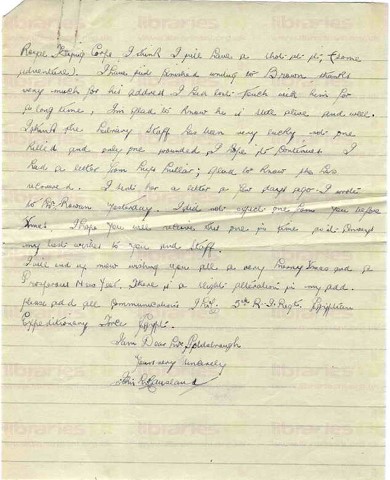 Royal Flying Corps I think I will have a shot at it, (some
adventure). I have just finished writing to Brown thanks
very much for his address I had lost touch with him for
so long time, Im glad to know he is still alive and well.
I think the Library Staff has been very lucky not one
killed and only one wounded, I hope it continues I
had a letter from Miss ; glad to know she has
recovered. I sent her a letter a few days ago I wrote
to Mr yesterday. I did not expect one from you before
Xmas. I hope you will receive this one in time with
my best wishes to you and Staff.
I will end up now wishing you all a very Merry Xmas and a
Prosperous New Year. There is a slight alteration in my add.
please add all communications 5th R. I. Regt. Egyptian
Expeditionary Force Egypt.
I am Dear Mr Goldsbrough
Yours very sincerely
libraries